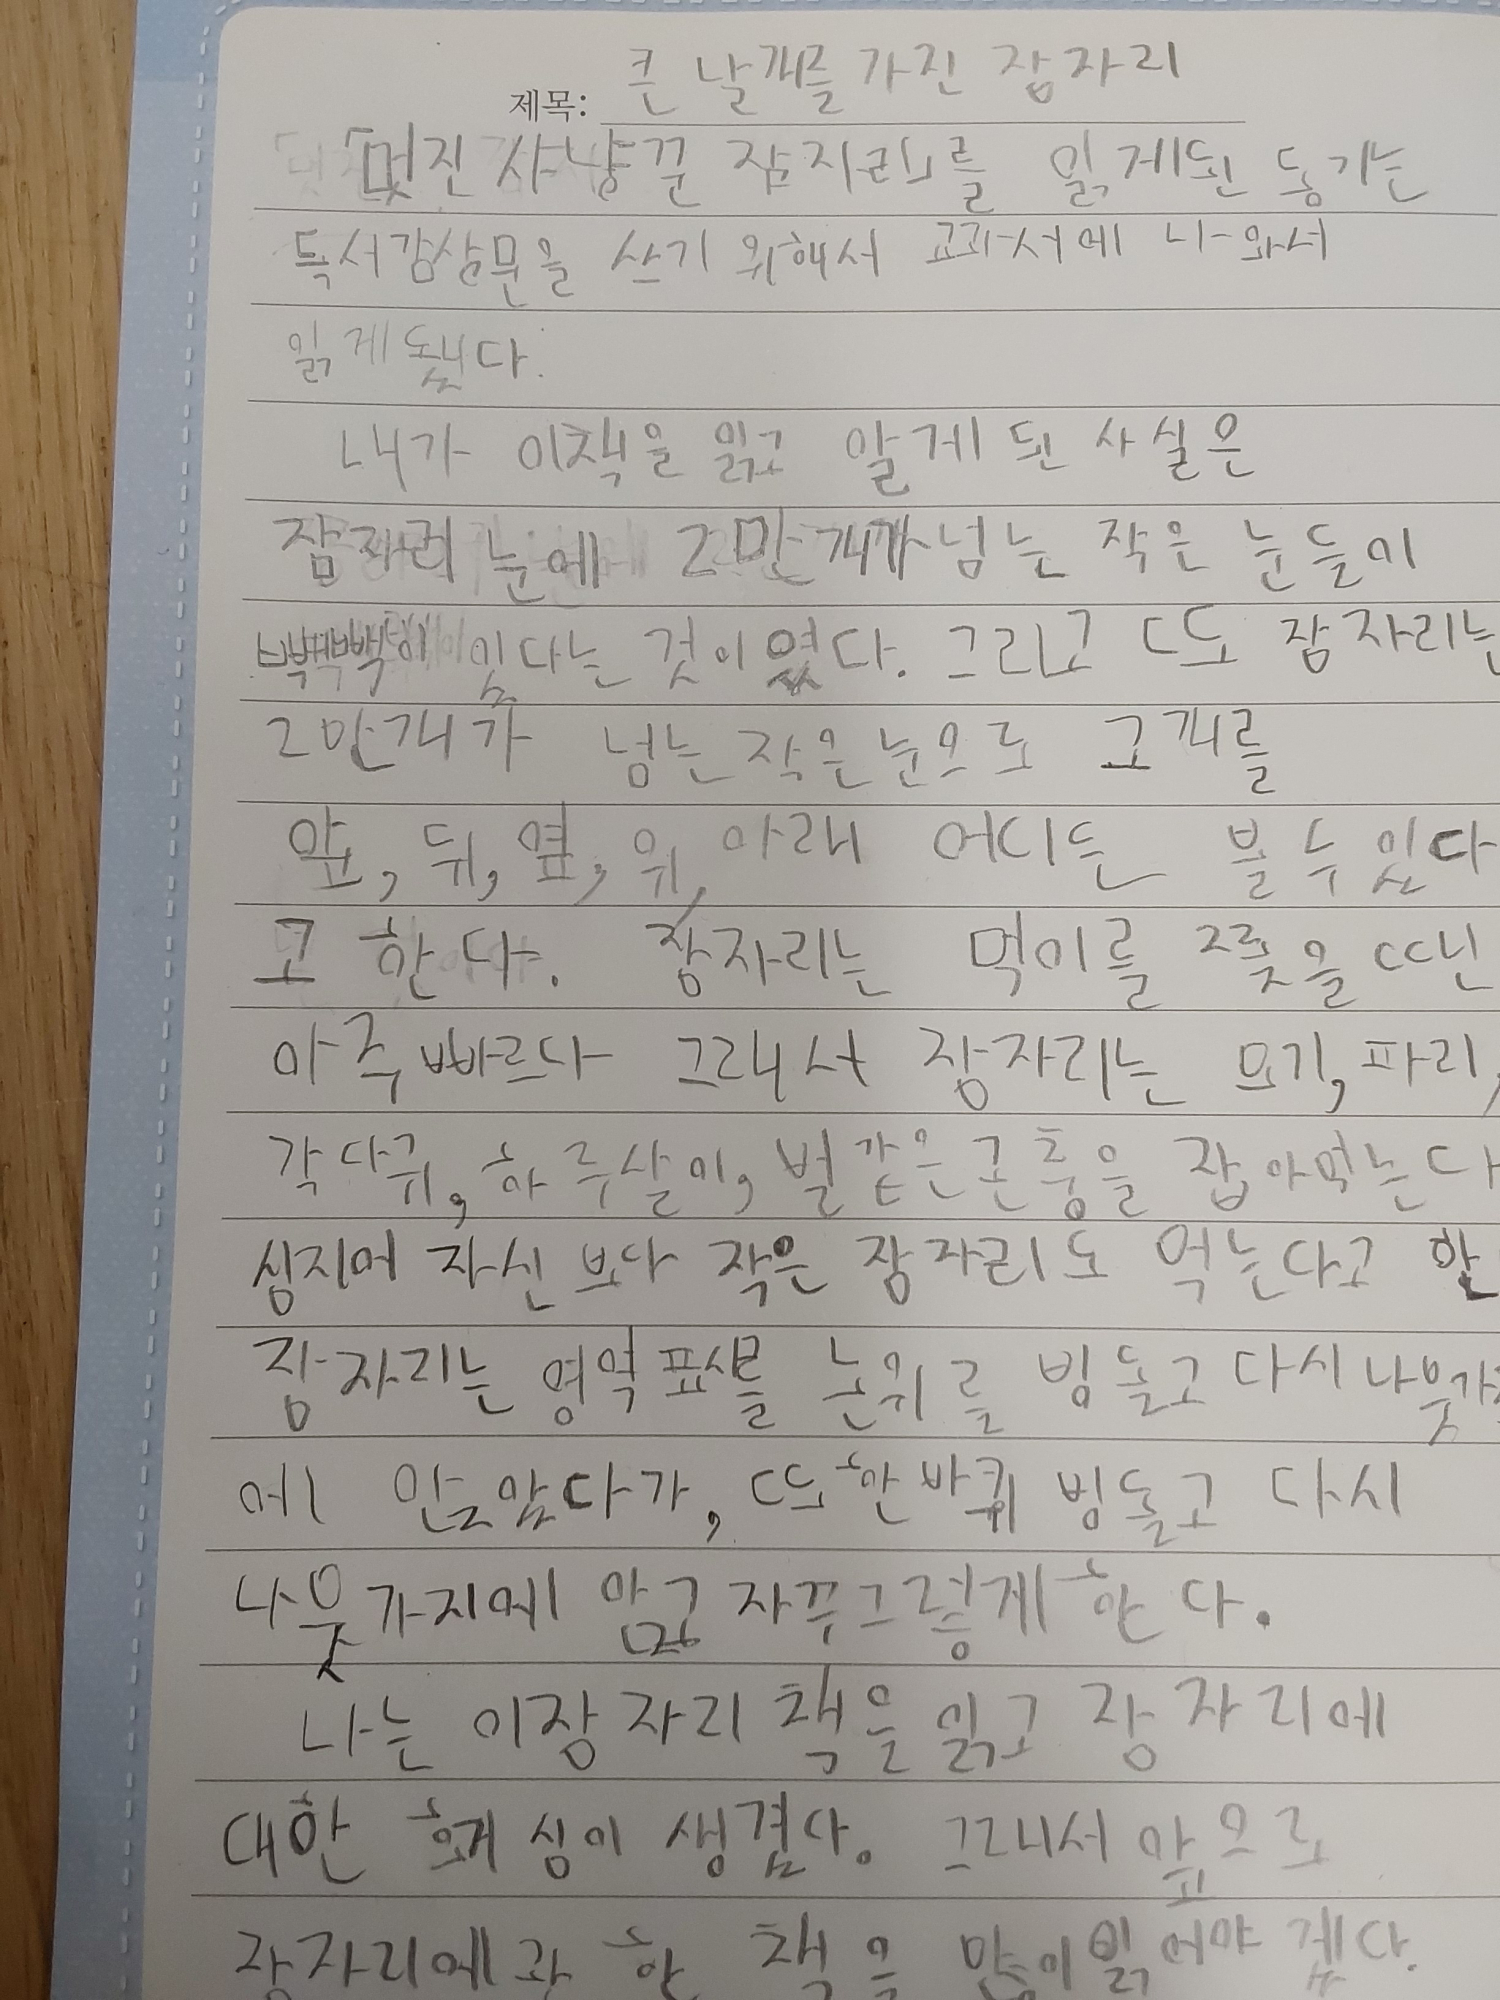 제목: 큰 날개를 가진 잠자리
「멋진 사냥꾼 잠자리」를 읽게된 동기는
독서감상문을 쓰기 위해서 교과서에 나와서
읽게됐다.
내가 이책을 읽고 알게 된 사실은
잠자리 눈에 2만개가 넘는 작은 눈들이
빽빽이 있다는 것이였다. 그리고 또 잠자리는
2만개가 넘는 작은눈으로 고개를
앞, 뒤, 옆, 위, 아래 어디든 볼 수 있다
고 한다. 잠자리는 먹이를 쫓을 땐
아주빠르다 그래서 잠자리는 모기, 파리,
각다귀, 하루살이, 벌 같은곤충을 잡아먹는다
심지어 자신보다 작은 잠자리도 먹는다고 한
잠자리는 영역표시를 논위를 빙돌고 다시 나뭇가
에 앉았다가, 또 한바퀴 빙돌고 다시
나뭇가지에 앉고 자꾸그렇게 한다.
나는 이잠자리 책을 읽고 잠자리에
대한 싱이 생겼다. 그래서 앞으로
잠자리에관한 책을 많이읽어야 겠다.